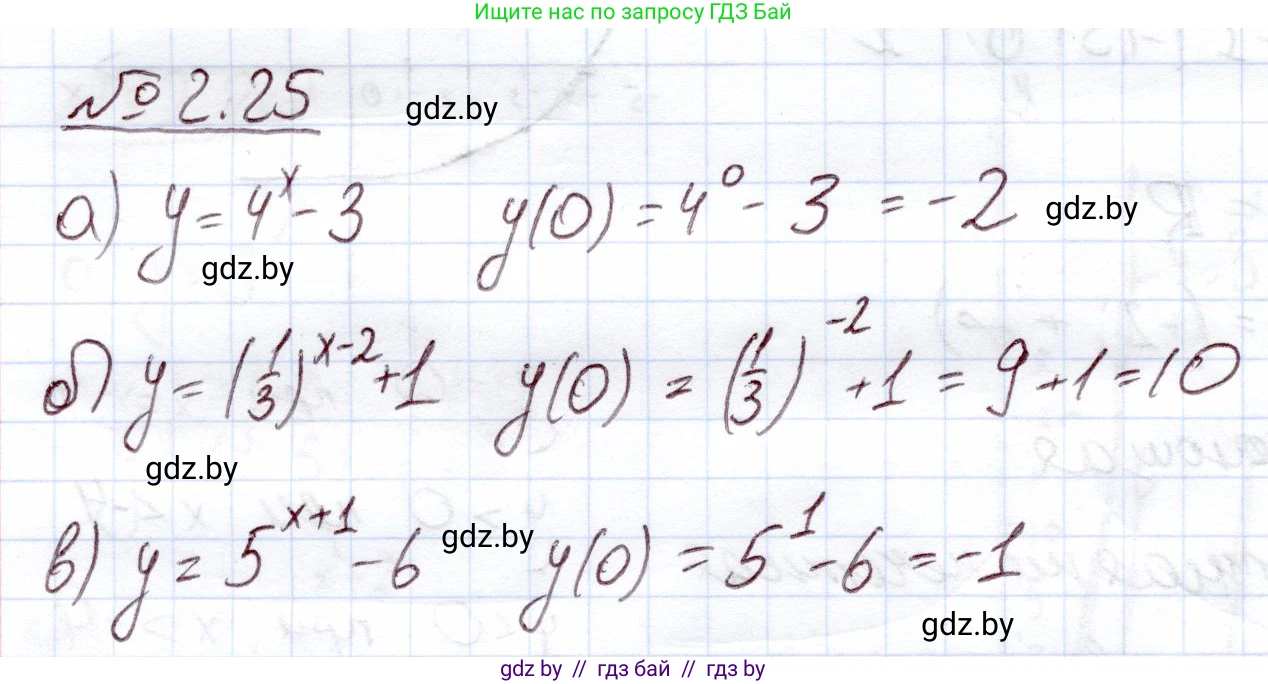 Ищите нас по запросу ГДЗ Бай
№ 2.25
gdz.by
а) y = 4^x - 3   y(0) = 4^0 - 3 = -2
gdz.by
gdz.by
б) y = (1/3)^{x-2} + 1   y(0) = (1/3)^{-2} + 1 = 9 + 1 = 10
gdz.by
в) y = 5^{x+1} - 6   y(0) = 5^1 - 6 = -1
gdz.by
gdz.by
gdz.by // гдз бай // гдз by